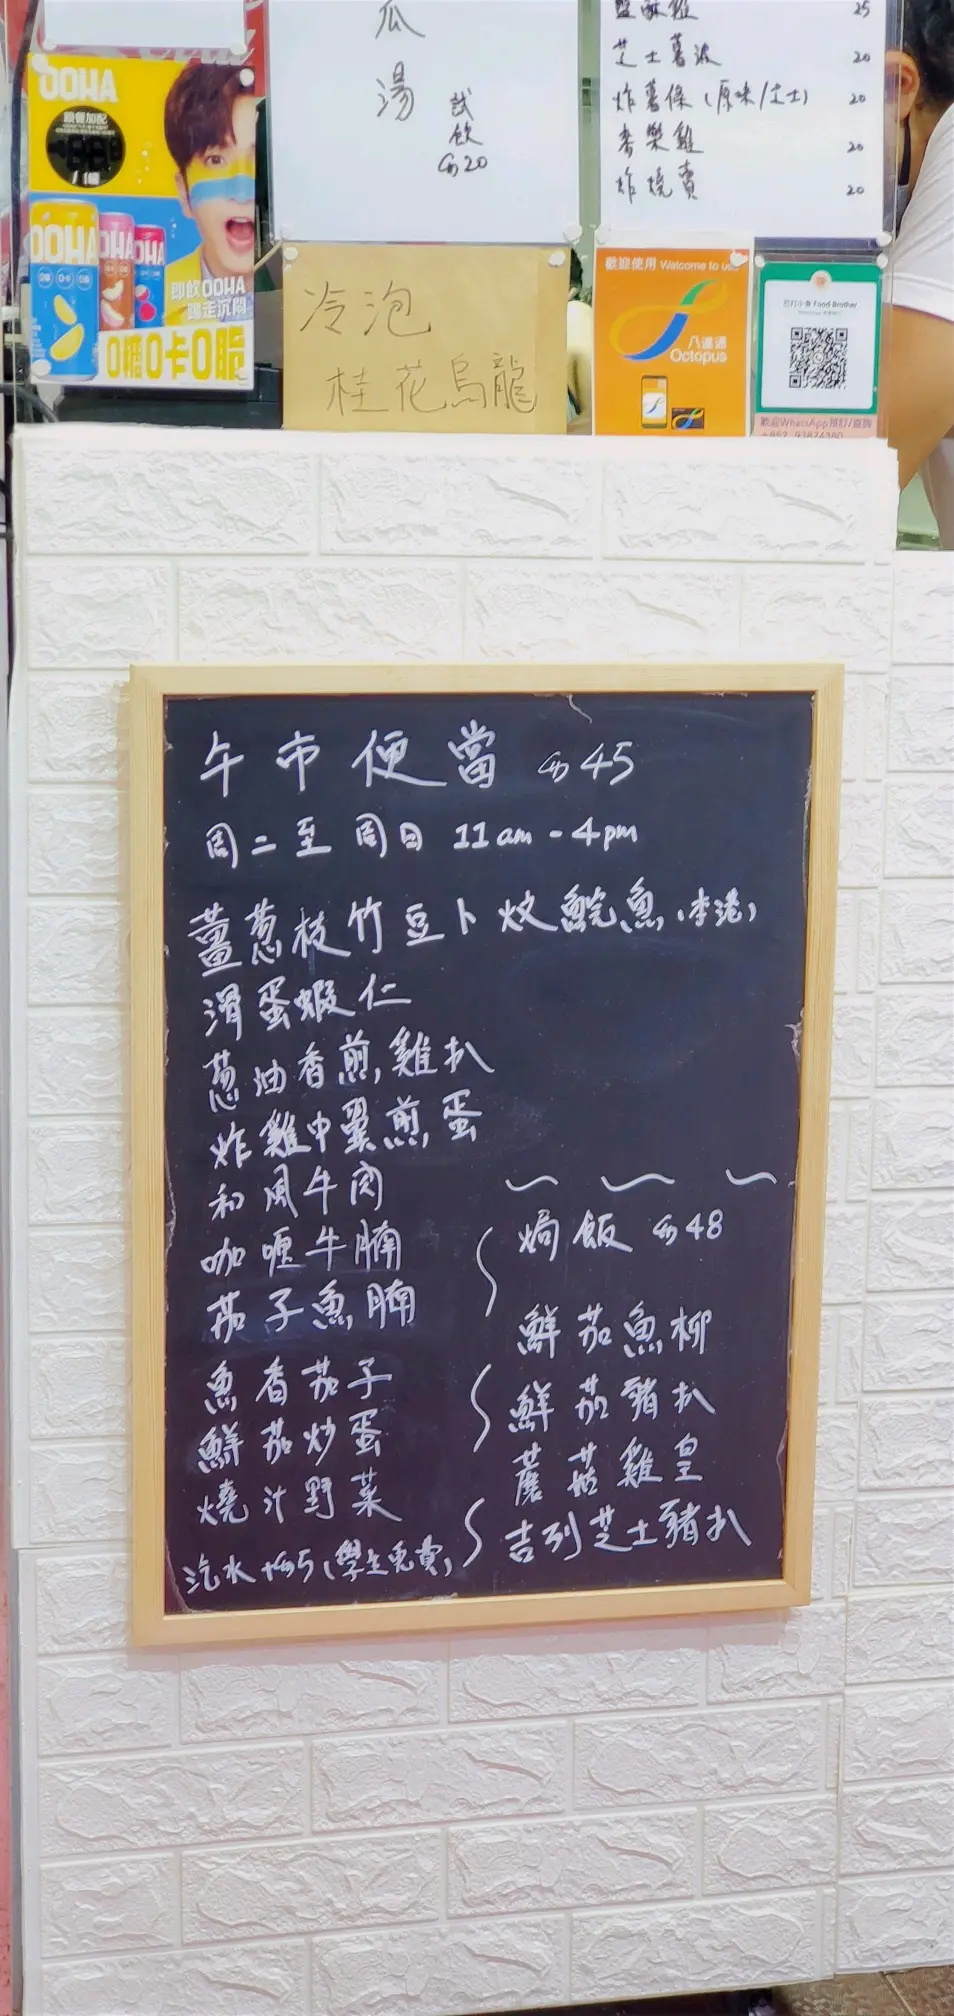 OOHA
跟餐加配
OOHA
即飲OOHA
踢走沉悶
0糖0卡0脂
瓜
湯
試
飲
$20
鹽酥雞 25
芝士薯波 20
炸薯條(原味/芝士) 20
香樂雞 20
炸燒賣 20
冷泡
桂花烏龍
歡迎使用 Welcome to use
八達通
Octopus
Food Brother
歡迎WhatsApp預訂/查詢
午市便當 $45
周二至周日 11am-4pm
薑葱枝竹豆卜炆鯇魚(本港)
滑蛋蝦仁
葱油香煎雞扒
炸雞中翼煎蛋
和風牛肉
咖喱牛腩
茄子魚腩
魚香茄子
鮮茄炒蛋
燒汁野菜
汽水+$5(學生免費)
焗飯 $48
鮮茄魚柳
鮮茄豬扒
蘑菇雞皇
吉列芝士豬扒